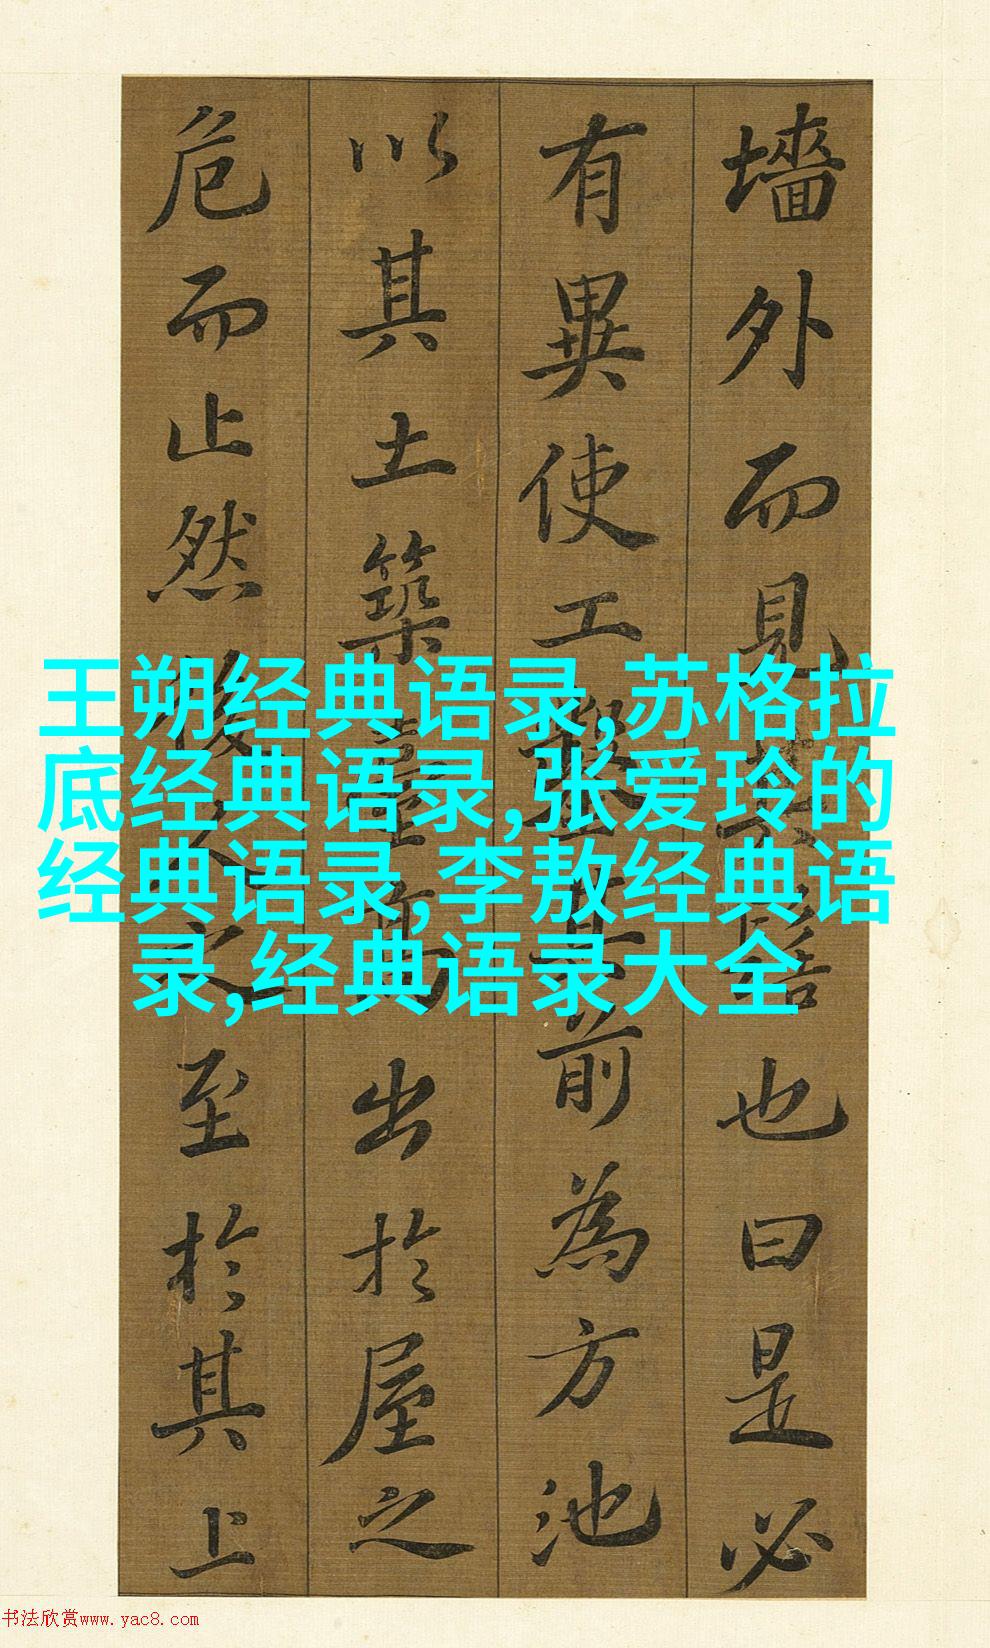 墻外而見其髻也曰是必
有異使工鑿其前為方池
以其土築臺高出於屋之
危而止然後人之至於其上
王朔经典语录,苏格拉
底经典语录,张爱玲的
经典语录,李敖经典语
录,经典语录大全
书法欣赏www.yac8.com